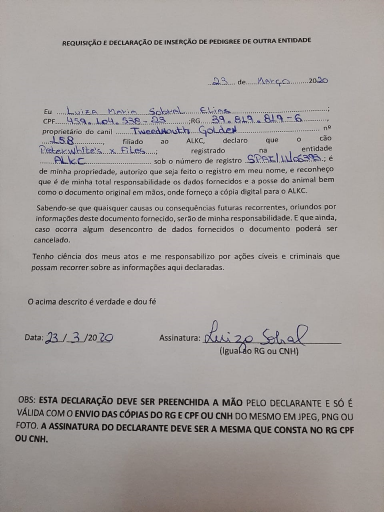 REQUISIÇÃO E DECLARAÇÃO DE INSERÇÃO DE PEDIGREE DE OUTRA ENTIDADE
23 de Março 2020
Eu Luiza Maria Sobral Elias;
CPF 459.104.538-25; RG 39.819.819-6,
proprietário do canil Tweedmouth Golden nº
158, filiado ao ALKC, declaro que o cão
Peterwhite's x Files, registrado na entidade
ALKC sob o número de registro; é
de minha propriedade, autorizo que seja feito o registro em meu nome, e reconheço
que é de minha total responsabilidade os dados fornecidos e a posse do animal bem
como o documento original em mãos, onde forneço a cópia digital para o ALKC.
Sabendo-se que quaisquer causas ou consequências futuras recorrentes, oriundos por
informações deste documento fornecido, serão de minha responsabilidade. E que ainda,
caso ocorra algum desencontro de dados fornecidos o documento poderá ser
cancelado.
Tenho ciência dos meus atos e me responsabilizo por ações cíveis e criminais que
possam recorrer sobre as informações aqui declaradas.
O acima descrito é verdade e dou fé
Data: 23/3/2020 Assinatura: Luiza Sobral
(Igual ao RG ou CNH)
OBS: ESTA DECLARAÇÃO DEVE SER PREENCHIDA A MÃO PELO DECLARANTE E SÓ É
VÁLIDA COM O ENVIO DAS CÓPIAS DO RG E CPF OU CNH DO MESMO EM JPEG, PNG OU
FOTO. A ASSINATURA DO DECLARANTE DEVE SER A MESMA QUE CONSTA NO RG CPF
OU CNH.